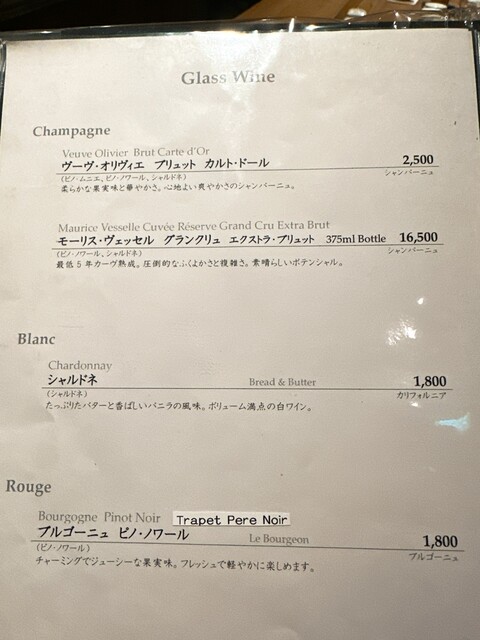 Glass Wine
Champagne
Veuve Olivier Brut Carte d'Or
ヴーヴ・オリヴィエ ブリュット カルト・ドール 2,500
(ピノ・ムニエ、ピノ・ノワール、シャルドネ) シャンパーニュ
柔らかな果実味と華やかさ。心地よい爽やかさのシャンパーニュ。
Maurice Vesselle Cuvée Réserve Grand Cru Extra Brut
モーリス・ヴェッセル グランクリュ エクストラ・ブリュット 375ml Bottle 16,500
(ピノ・ノワール、シャルドネ) シャンパーニュ
最低5年カーヴ熟成。圧倒的なふくよかさと複雑さ。素晴らしいポテンシャル。
Blanc
Chardonnay
シャルドネ Bread & Butter 1,800
(シャルドネ) カリフォルニア
たっぷりたバターと香ばしいバニラの風味。ボリューム満点の白ワイン。
Rouge
Bourgogne Pinot Noir Trapet Pere Noir
ブルゴーニュ ピノ・ノワール Le Bourgeon 1,800
(ピノ・ノワール) ブルゴーニュ
チャーミングでジューシーな果実味。フレッシュで軽やかに楽しめます。